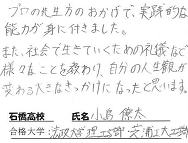 プロの先生方のおかげで、実践的な
能力が身に付きました。
また、社会で生きていくための礼儀など
様々なことを教わり、自分の人生観が
変わる大きなきっかけになったと思います。
石橋高校 氏名 小島 俊太
合格大学 法政大学理工学部 芝浦工大工学部